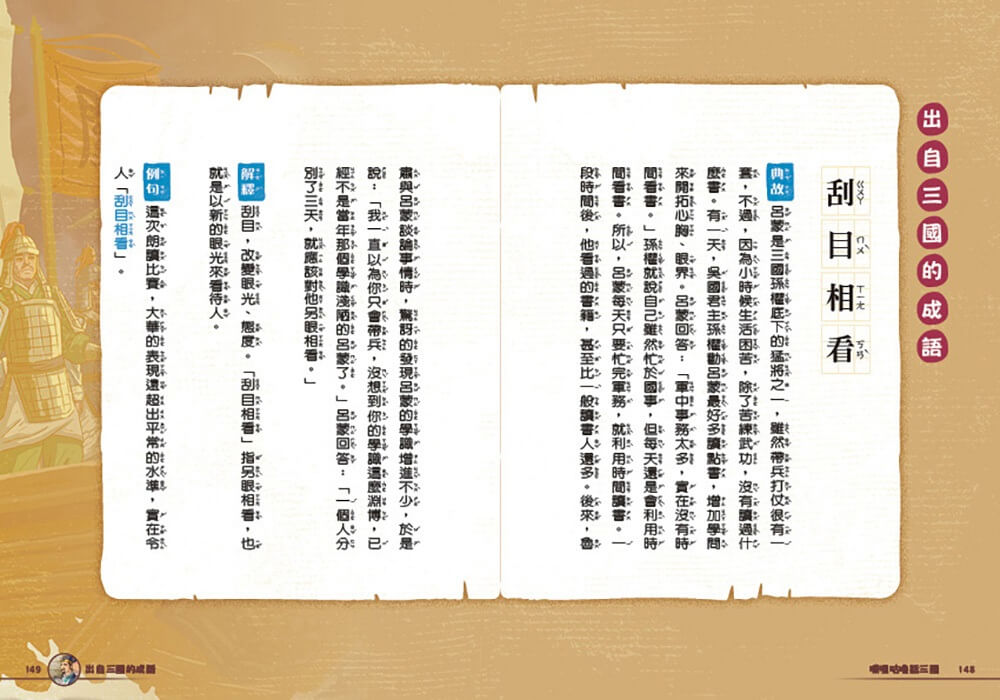 出自三國的成語
刮目相看
ㄍㄨㄚ ㄇㄨˋ ㄒㄧㄤ ㄎㄢˋ
典故 呂蒙是三國孫權底下的猛將之一,雖然帶兵打仗很有一
套,不過,因為小時候生活困苦,除了苦練武功,沒有讀過什
麼書。有一天,吳國君主孫權勸呂蒙最好多讀點書,增加學問
來開拓心胸、眼界。呂蒙回答:「軍中事務太多,實在沒有時
間看書。」孫權就說自己雖然忙於國事,但每天還是會利用時
間看書。所以,呂蒙每天只要忙完軍務,就利用時間讀書。一
段時間後,他看過的書籍,甚至比一般讀書人還多。後來,魯
肅與呂蒙談論事情時,驚訝的發現呂蒙的學識增進不少,於是
說:「我一直以為你只會帶兵,沒想到你的學識這麼淵博,已
經不是當年那個學識淺陋的呂蒙了。」呂蒙回答:「一個人分
別了三天,就應該對他另眼相看。」
解釋 刮目,改變眼光、態度。「刮目相看」指另眼相看,也
就是以新的眼光來看待人。
例句 這次朗讀比賽,大華的表現遠超出平常的水準,實在令
人「刮目相看」。
148
149 出自三國的成語